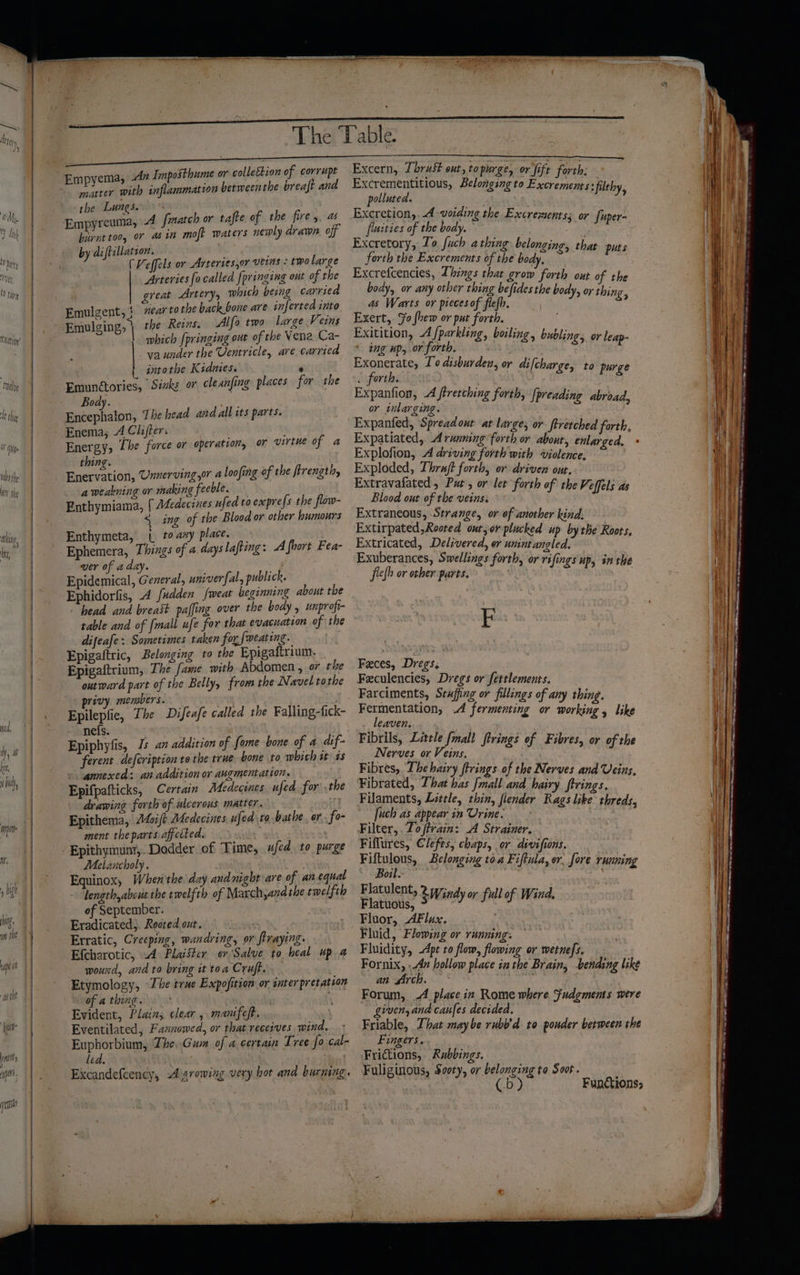 The Table.
Empyema, An Imposthume or collection of corrupt
matter with inflammation between the breast and
the Lungs.
Empyreuma, A smatch or taste of the fire, as
burnt too, or as in most waters newly drawn off
by distillation.
Vessels or Arteries, or veins: two large
Arteries so called springing out of the
great Artery, which being carried
Emulgent, near to the back bone are inserted into
Emulging, the Reins. Also two large Veins
which springing out of the Vena Ca-
va under the Ventricle, are carried
into the Kidnies.
Emunctories, Sinks or cleansing places for the
Body.
Encephalon, The head and all its parts.
Enema, A Clister.
Energy, The force or operation, or virtue of a
thing.
Enervation, Unnerving, or a loosing of the strength,
a weakning or making feeble.
Enthymiama, Medecines used to express the flow-
ing of the Blood or other humours
Enthymeta, to any place.
Ephemera, Things of a days lasting: A short Fea-
ver of a day.
Epidemical, General, universal, publick.
Ephidorsis, A sudden sweat beginning about the
head and breast passing over the body, unprofi-
table and of small use for that evacuation of the
disease: Sometimes taken for sweating.
Epigastric, Belonging to the Epigastrium.
Epigastrium, The same with Abdomen, or the
outward part of the Belly, from the Navel to the
privy members.
Epilepsie, The Disease called the Falling-sick-
ness.
Epiphysis, Is an addition of some bone of a dif-
ferent description to the true bone to which it is
annexed: an addition or augmentation.
Epispasticks, Certain Medecines used for the
drawing forth of ulcerous matter.
Epithema, Moist Medecines used to bathe or fo-
ment the parts affected.
Epithymum, Dodder of Time, used to purge
Melancholy.
Equinox, When the day and night are of an equal
length, about the twelfth of March, and the twelfth
of September.
Eradicated, Rooted out.
Erratic, Creeping, wandring, or straying.
Escharotic, A Plaister or Salve to heal up a
wound, and to bring it to a Crust.
Etymology, The true Exposition or interpretation
of a thing.
Evident, Plain, clear, manifest.
Eventilated, Fannowed, or that receives wind.
Euphorbium, The Gum of a certain Tree so cal-
led.
Excandescency, A growing very hot and burning.
Excern, Thrust out, to purge, or sift forth.
Excrementitious, Belonging to Excrements: filthy,
polluted.
Excretion, A voiding the Excrements, or super-
fluities of the body.
Excretory, To such a thing belonging, that puts
forth the Excrements of the body.
Excrescencies, Things that grow forth out of the
body, or any other thing besides the body, or thing,
as Warts or pieces of flesh.
Exert, To shew or put forth.
Exitition, A sparkling, boiling, bubling, or leap-
ing up, or forth.
Exonerate, To disburden, or discharge, to purge
forth.
Expansion, A stretching forth, spreading abroad,
or inlarging.
Expansed, Spread out at large, or stretched forth.
Expatiated, A running forth or about, enlarged.
Explosion, A driving forth with violence.
Exploded, Thrust forth, or driven out.
Extravasated, Put, or let forth of the Vessels as
Blood out of the veins.
Extraneous, Strange, or of another kind.
Extirpated, Rooted out, or plucked up by the Roots.
Extricated, Delivered, or unintangled.
Exuberances, Swellings forth, or risings up, in the
flesh or other parts.
F
Fæces, Dregs.
Fæculencies, Dregs or settlements.
Farciments, Stuffing or fillings of any thing.
Fermentation, A fermenting or working, like
leaven.
Fibrils, Little small strings of Fibres, or of the
Nerves or Veins.
Fibres, The hairy strings of the Nerves and Veins.
Fibrated, That has small and hairy strings.
Filaments, Little, thin, slender Rags like threds,
such as appear in Urine.
Filter, To strain: A Strainer.
Fissures, Clefts, chaps, or divisions.
Fistulous, Belonging to a Fistula, or sore running
Boil.
Flatulent, Windy or full of Wind.
Flatuous,
Fluor, A Flux.
Fluid, Flowing or running.
Fluidity, Apt to flow, flowing or wetness.
Fornix, An hollow place in the Brain, bending like
an Arch.
Forum, A place in Rome where Judgments were
given, and causes decided.
Friable, That may be rubb'd to pouder between the
Fingers.
Frictions, Rubbings.
Fuliginous, Sooty, or belonging to Soot.
(b) Functions,